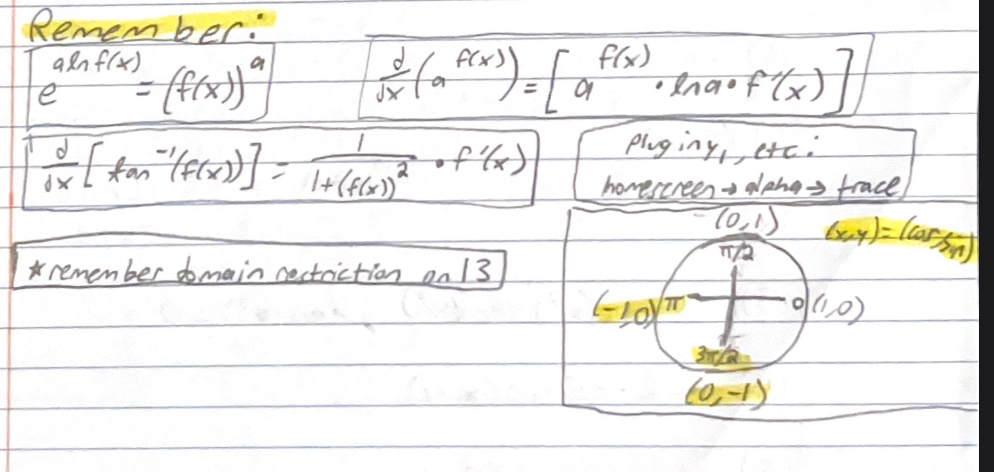 Remember:
e^(a ln f(x)) = (f(x))^a
d/dx (a^(f(x))) = [a^(f(x)) · ln a · f'(x)]
d/dx [tan⁻¹(f(x))] = 1/(1+(f(x))²) · f'(x)
Plug in y₁, etc:
homescreen → alpha → trace
*remember domain restriction on 13
(0,1)
(x,y)=(cos,sin)
π/2
(-1,0) π 0 (1,0)
3π/2
(0,-1)